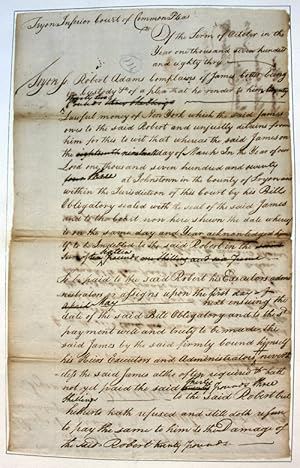 Tryon Inferior Court of Common Pleas
Of the Term of October in the
Year one thousand seven hundred
and eighty three
Tryon Ss Robert Adams Complains of James being
in Custody &c of a plea that he render to him twenty
Lawful money of New York which the said James
owes to the said Robert and unjustly detains from
him for this to wit that whereas the said James on
the day of March In the Year of our
Lord one thousand seven hundred and seventy
three at Johnstown in the County of Tryon and
within the Jurisdiction of this Court by his Bill
Obligatory sealed with the seal of the said James
and to the Court now here shewn the date whereof
is on the same day and Year acknowledged himself
to be Indebted to the said Robert in the
Sum of
To be paid to the said Robert his Executors admi-
nistrators or assigns upon the first day of
May next ensuing the
date of the said Bill Obligatory and to the
payment well and truly to be made the
said James by the said firmly bound himself
his Heirs Executors and Administrators neverthe-
less the said James altho often requested hath
not yet paid the said pounds three
shillings to the said Robert but
hitherto hath refused and still doth refuse
to pay the same to him to the Damage of
the said Robert twenty pounds